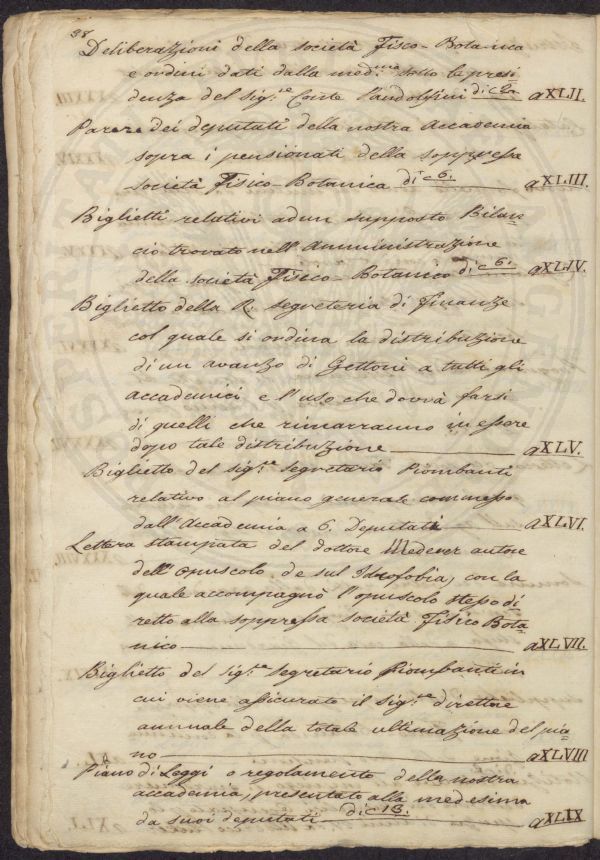 38
Deliberazioni della società Fisco-Botanica
e ordini dati dalla med.ma sotto la presi
denza del sig.re Conte Pandolfini di c 2a aXLII.
Parere dei deputati della nostra Accademia
sopra i pensionati della soppressa
società Fisico-Botanica di c 6. aXLIII.
Biglietti relativi ad un supposto Bilan
cio trovato nell'Amministrazione
della società Fisico-Botanico di c 6. aXLIV.
Biglietto della R. segreteria di Finanze
col quale si ordina la distribuzione
di un avanzo di Gettoni a tutti gli
accademici e l'uso che dovrà farsi
di quelli che rimarranno in essere
dopo tale distribuzione aXLV.
Biglietto del sig.re segretario Piombanti
relativo al piano generale commesso
dall'Accademia a 6. Deputati aXLVI.
Lettera stampata del dottore Mederer autore
dell'opuscolo de sul Idrofobia, con la
quale accompagnò l'opuscolo stesso di
retto alla soppressa società Fisico Bota
nico aXLVII.
Biglietto del sig.re segretario Piombanti in
cui viene assicurato il sig.re direttore
annuale della totale ultimazione del pia
no aXLVIII
Piano di Leggi o regolamento della nostra
accademia, presentato alla medesima
da suoi deputati di c 13. aXLIX.